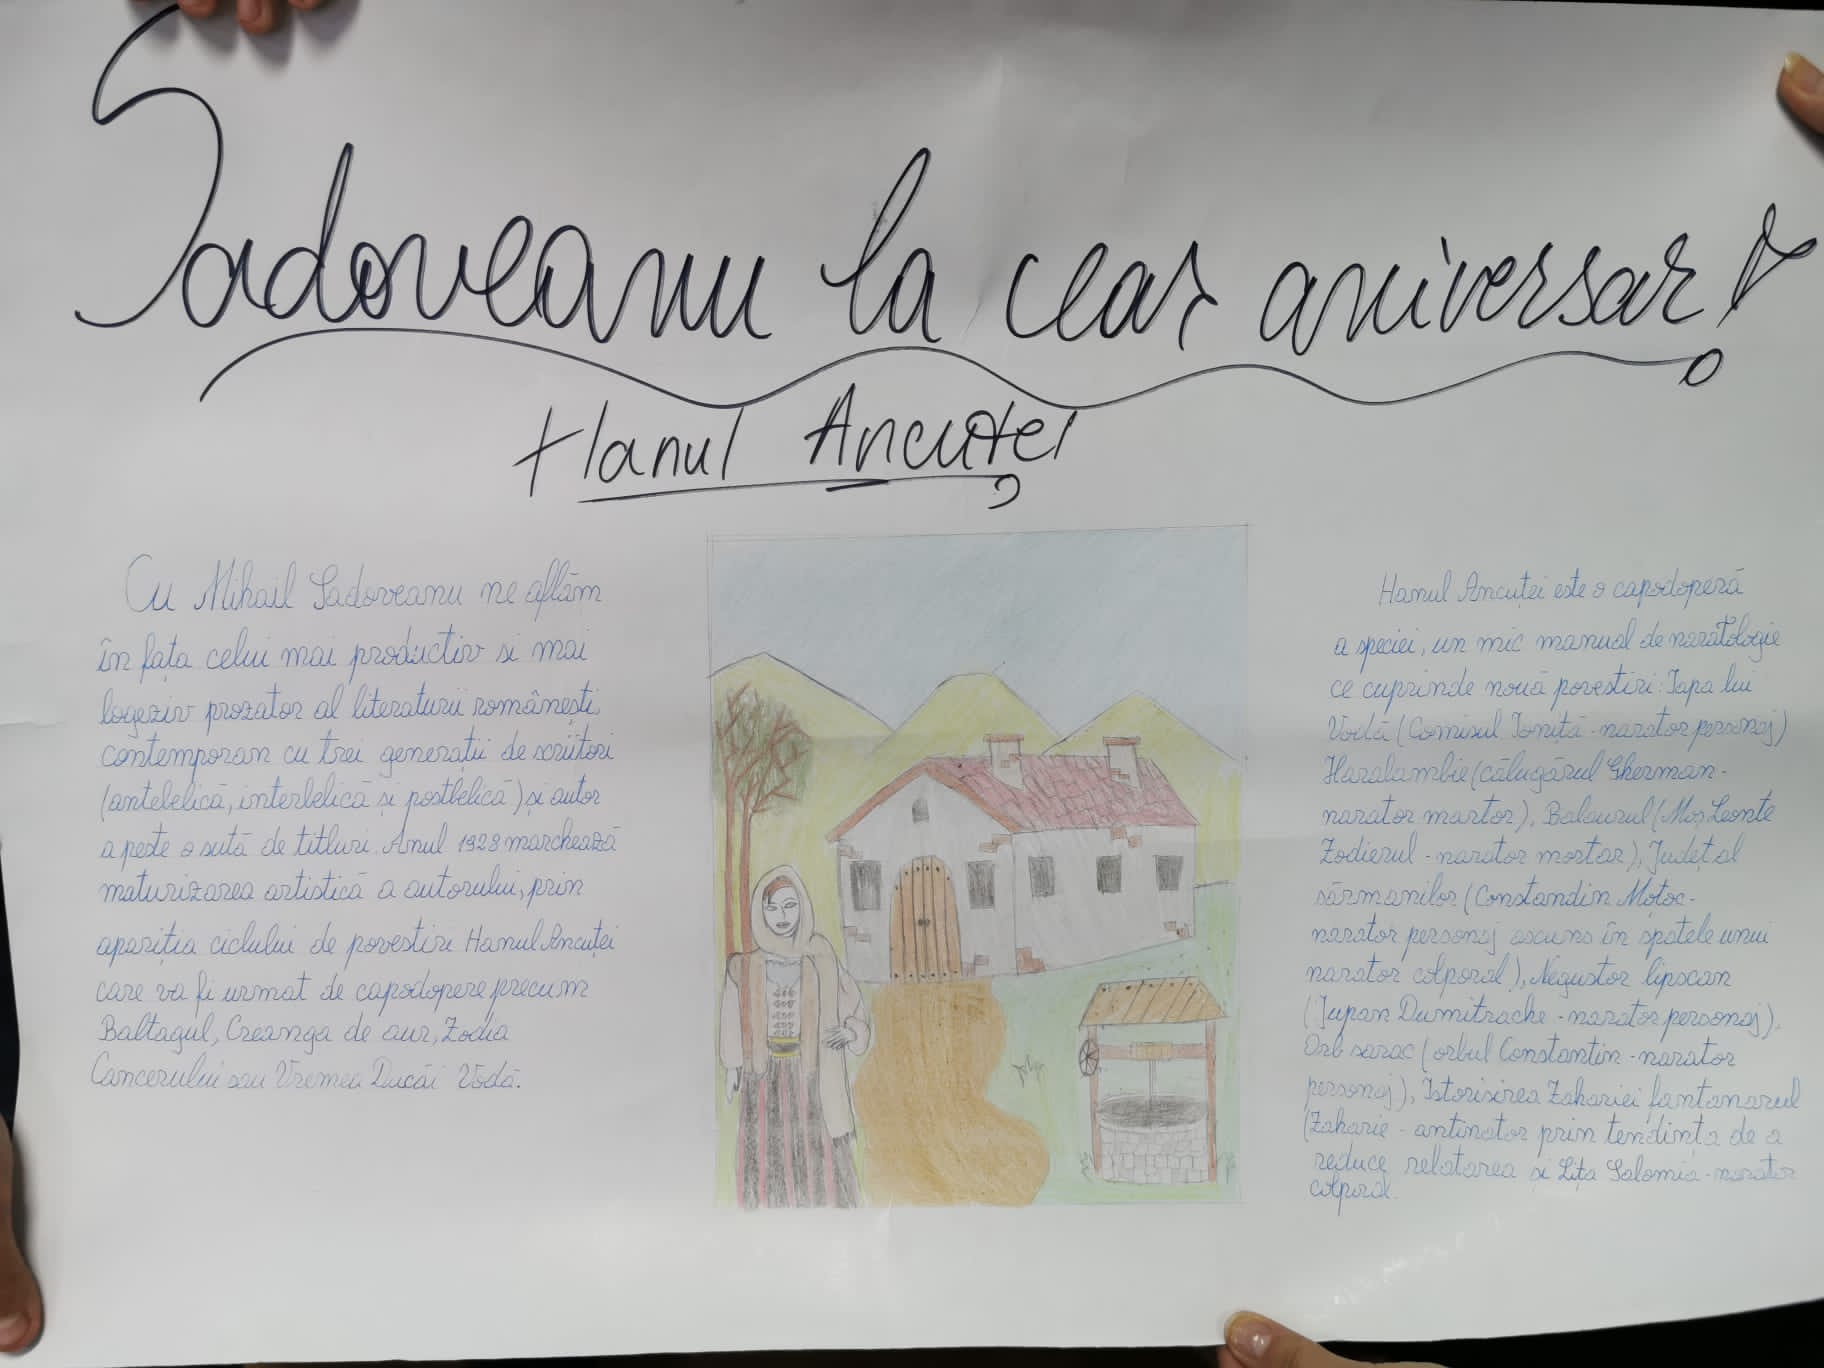 Sadoveanu la ceas aniversar!
Hanul Ancuței
Cu Mihail Sadoveanu ne aflăm
în fața celui mai productiv si mai
logeziv prozator al literaturii românești,
contemporan cu trei generații de scriitori
(antebelică, interbelică și postbelică) și autor
a peste o sută de titluri. Anul 1928 marchează
maturizarea artistică a autorului, prin
apariția ciclului de povestiri Hanul Ancuței
care va fi urmat de capodopere precum
Baltagul, Creanga de aur, Zodia
Cancerului sau Vremea Ducăi Vodă.
Hanul Ancuței este o capodoperă
a speciei, un mic manual de naratologie
ce cuprinde nouă povestiri: Iapa lui
Vodă (Comisul Ioniță - narator personaj)
Haralambie (călugărul Gherman -
narator martor), Balaurul (Moș Leonte
Zodierul - narator mortar), Județ al
sărmanilor (Constandin Moțoc -
narator personaj ascuns în spatele unui
narator colporal), Negustor lipscan
(Jupan Dumitrache - narator personaj),
Orb sarac (orbul Constantin - narator
personaj), Istorisirea Zahariei fantanarul
(Zaharie - antinator prin tendința de a
reduce relatarea și Lița Salomia - narator
colporal.